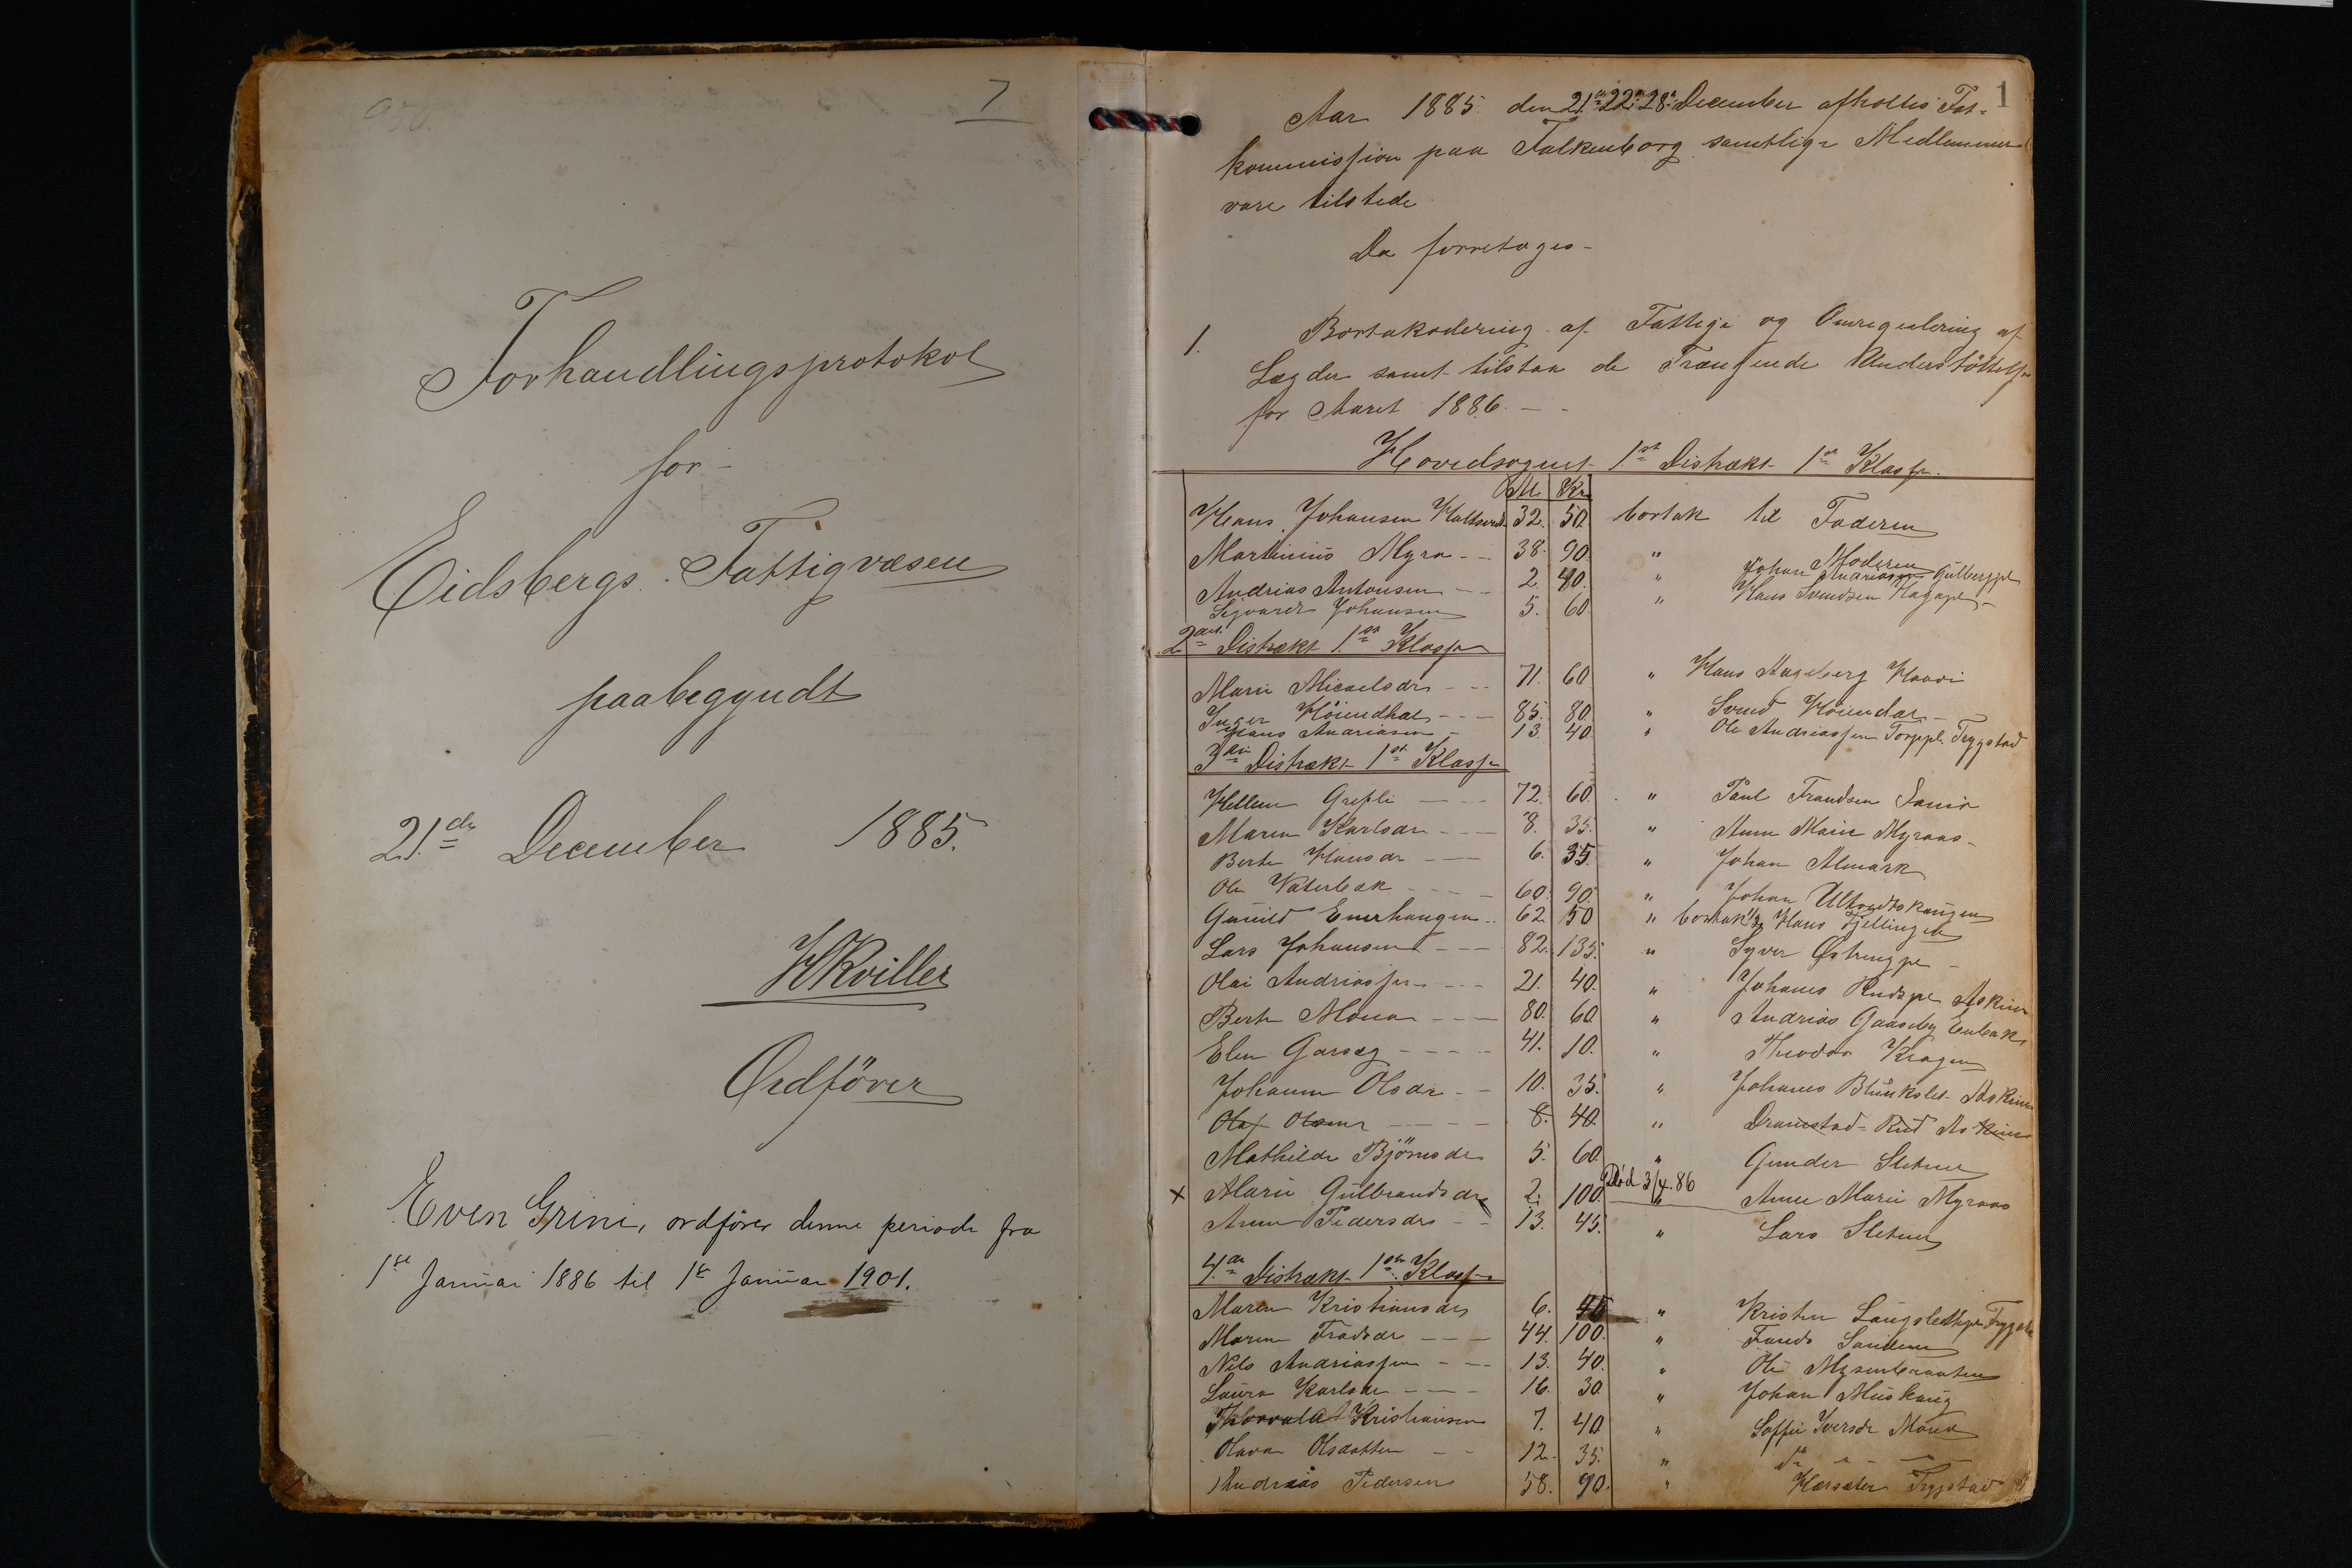 950.
7
Forhandlingsprotokol
for
Eidsbergs Fattigvæsen
paabegyndt
21de December 1885.
HKviller
Ordförer
Even Grini, ordförer denne periode fra
1ste Januar 1886 til 1ste Januar 1901.
1
Aar 1885 den 21de 22de 28de December afholtes Fat-
kommission paa Falkenborg samtlige Medlemmer
vare tilstede
Da forretoges -
1. Bortakodering af Fattige og Omregulering af
Lægder samt tilstaa de Trængende Understöttelse
for Aaret 1886. -
Hovedsognet 1ste Distrækt 1ste Klasse.
Al. Kr.
Hans Johansen 32. 50. bortak til Faderen
Martinius Myra 38. 90. " Moderen
Andrias Antonsen 2. 40. " Johan Andriasen Gulbergpl
Sigvard Johansen 5. 60. " Hans Svendsen
2det Distrækt 1ste Klasse
Marie Micaelsdr 71. 60 " Hans Hageberg
Inger Höiendhal 85. 80. " Svend Höiendar
Hans Andriasen 13. 40 " Ole Andriassen Torppl. Trygstad
3die Distrækt 1ste Klasse
Hellene Grefsli 72. 60. " Paul Frandsen
Maren Karlsdr 8. 35. " Anne Marie Myraas
Berte Hansdr 6. 35. " Johan Almark
Ole Vaterbæk 60. 90. " Johan
Gunild Enerhaugen 62 50 " bortak til Hans Fjellingen
Lars Johansen 82. 135. " Syver
Olai Andriassen 21. 40. " Johanes Rudspl Askim
Berte Mona 80. 60. " Andrias Gaasby Enebak
Elen Garseg 41. 10. " Theodor Kragen
Johanne Olsdr 10. 35. " Johanes Askim
Olaf Olsen 8. 40. " Dramstad Rud Askim
Mathilde Björnsdr 5. 60. " Gunder Sletner
x Marie Gulbrandsdr 2. 100. Död 3/4.86 " Anne Marie Myraas
Anne Pedersdr 13. 45. " Lars Sletner
4de Distrækt 1ste Klasse
Maren Kristiansdr 6. 45 " Kristen
Maren 44. 100. "
Nils Andriassen 13. 40. " Ole Mysenbraaten
Laura Karlsdr 16. 30. " Johan
Thorvald Kristiansen 7. 40 " Soffie Iversdr Mona
Olava Olsdatter 12. 35. " do "
Andrias Pedersen 58. 90. " Hærsæter Trygstad